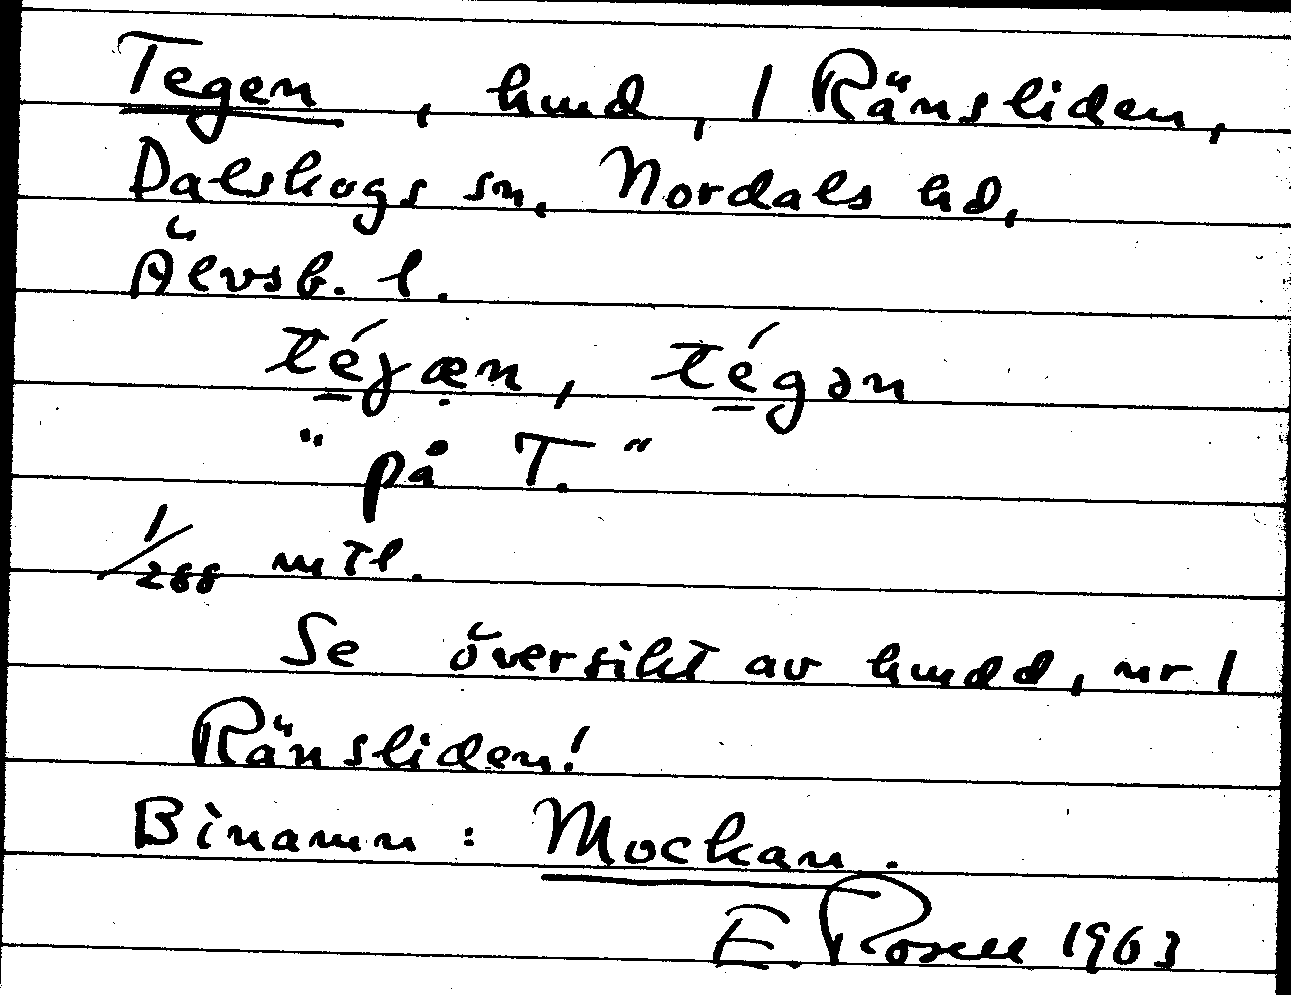 Tegen, hmd, 1 Ränsliden,
Dalskogs sn, Nordals hd,
Älvsb. l.
té̱jæ̣n, té̱gən
"på T."
1/288 mtl.
Se översikt av hmdd, nr 1
Ränsliden!
Binamn: Mockan.
E. Rosell 1963